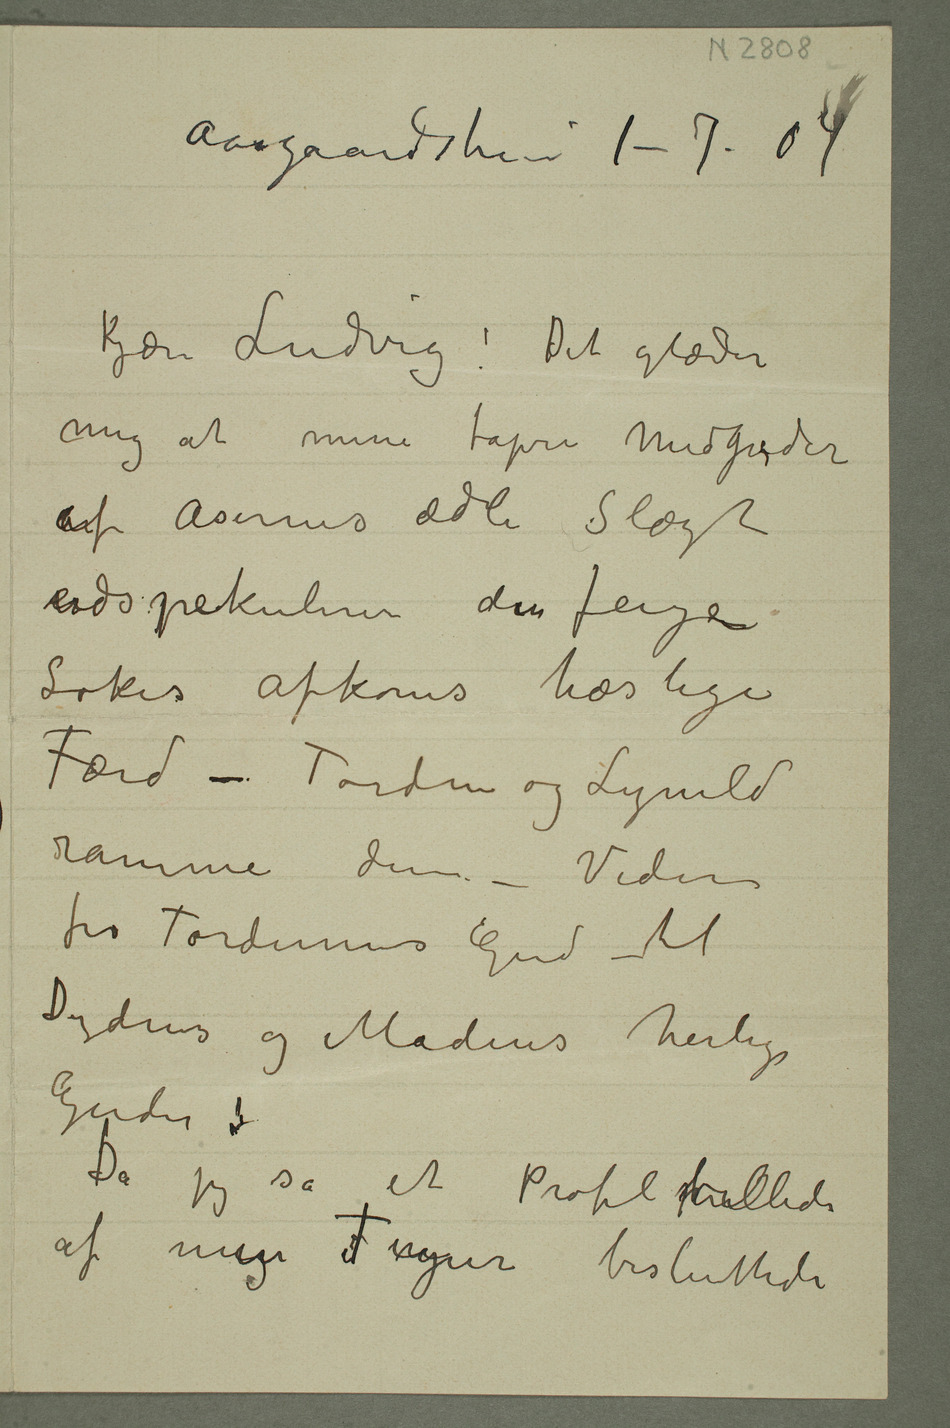 N 2808
Aasgaardstrand 1–7–04
Kjære Ludvig! Det glæder
mig at mine tapre Medguder
af Asernes ædle Slægt
udspekulerer den feige
Lokes afkoms hæslige
Færd – Torden og Lynild
ramme dem – Viden
fra Tordenens Gud – til
Dydens og Madens herlige
Guder!
Da jeg så et Profilbillede
af min Figur besluttede